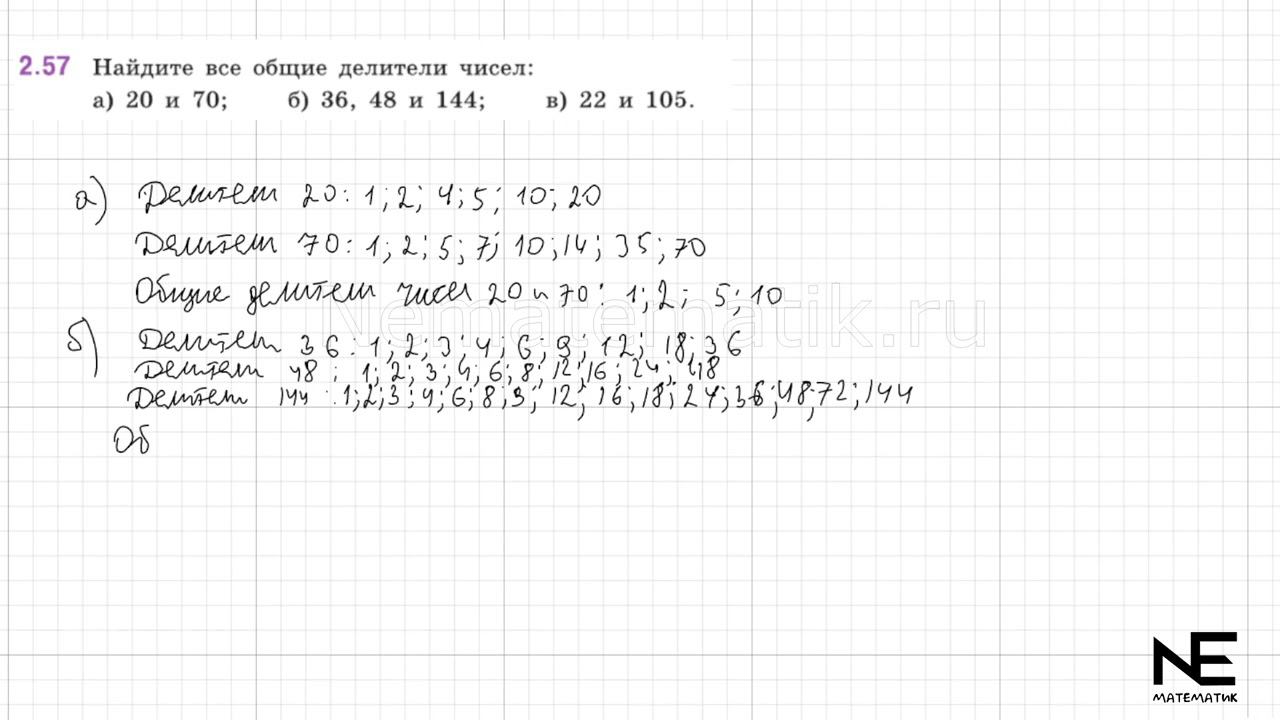 2.57 Найдите все общие делители чисел:
а) 20 и 70; б) 36, 48 и 144; в) 22 и 105.
а) Делители 20: 1; 2; 4; 5; 10; 20
Делители 70: 1; 2; 5; 7; 10; 14; 35; 70
Общие делители чисел 20 и 70: 1; 2; 5; 10
Nematematik.ru
б) Делители 36: 1; 2; 3; 4; 6; 9; 12; 18; 36
Делители 48: 1; 2; 3; 4; 6; 8; 12; 16; 24; 48
Делители 144: 1; 2; 3; 4; 6; 8; 9; 12; 16; 18; 24; 36; 48; 72; 144
Об
NE
МАТЕМАТИК